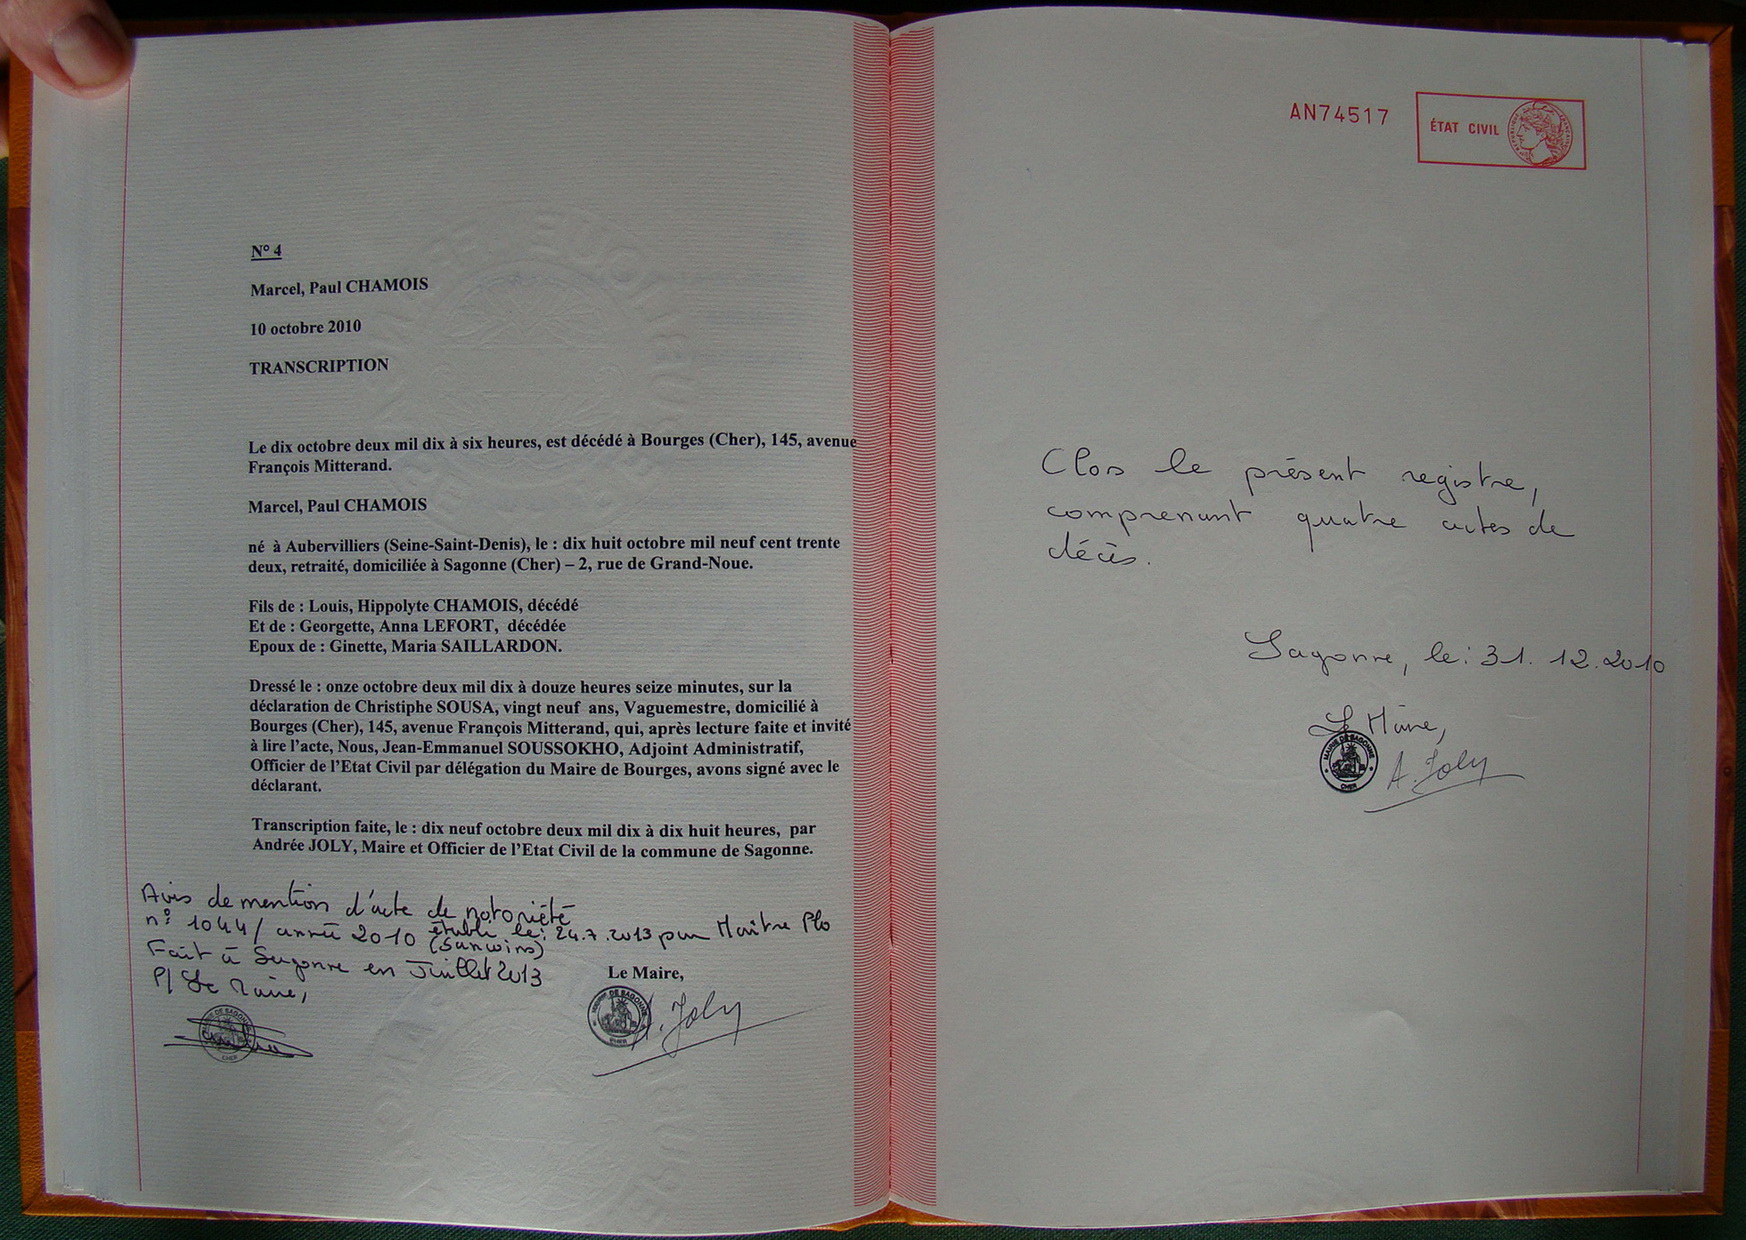 N° 4
Marcel, Paul CHAMOIS
10 octobre 2010
TRANSCRIPTION
Le dix octobre deux mil dix à six heures, est décédé à Bourges (Cher), 145, avenue
François Mitterand.
Marcel, Paul CHAMOIS
né à Aubervilliers (Seine-Saint-Denis), le : dix huit octobre mil neuf cent trente
deux, retraité, domiciliée à Sagonne (Cher) – 2, rue de Grand-Noue.
Fils de : Louis, Hippolyte CHAMOIS, décédé
Et de : Georgette, Anna LEFORT, décédée
Epoux de : Ginette, Maria SAILLARDON.
Dressé le : onze octobre deux mil dix à douze heures seize minutes, sur la
déclaration de Christiphe SOUSA, vingt neuf ans, Vaguemestre, domicilié à
Bourges (Cher), 145, avenue François Mitterand, qui, après lecture faite et invité
à lire l'acte, Nous, Jean-Emmanuel SOUSSOKHO, Adjoint Administratif,
Officier de l'Etat Civil par délégation du Maire de Bourges, avons signé avec le
déclarant.
Transcription faite, le : dix neuf octobre deux mil dix à dix huit heures, par
Andrée JOLY, Maire et Officier de l'Etat Civil de la commune de Sagonne.
Avis de mention d'acte de notoriété
n° 1044/ année 2010 établi le: 24.7.2013 par Maître Plo
(Sancoins)
Fait à Sagonne en Juillet 2013
P/ Le Maire,
Le Maire,
MAIRIE DE SAGONNE
CHER
A. Joly
AN74517
ÉTAT CIVIL
Clos le présent registre,
comprenant quatre actes de
décès.
Sagonne, le: 31.12.2010
Le Maire,
MAIRIE DE SAGONNE
CHER
A. Joly